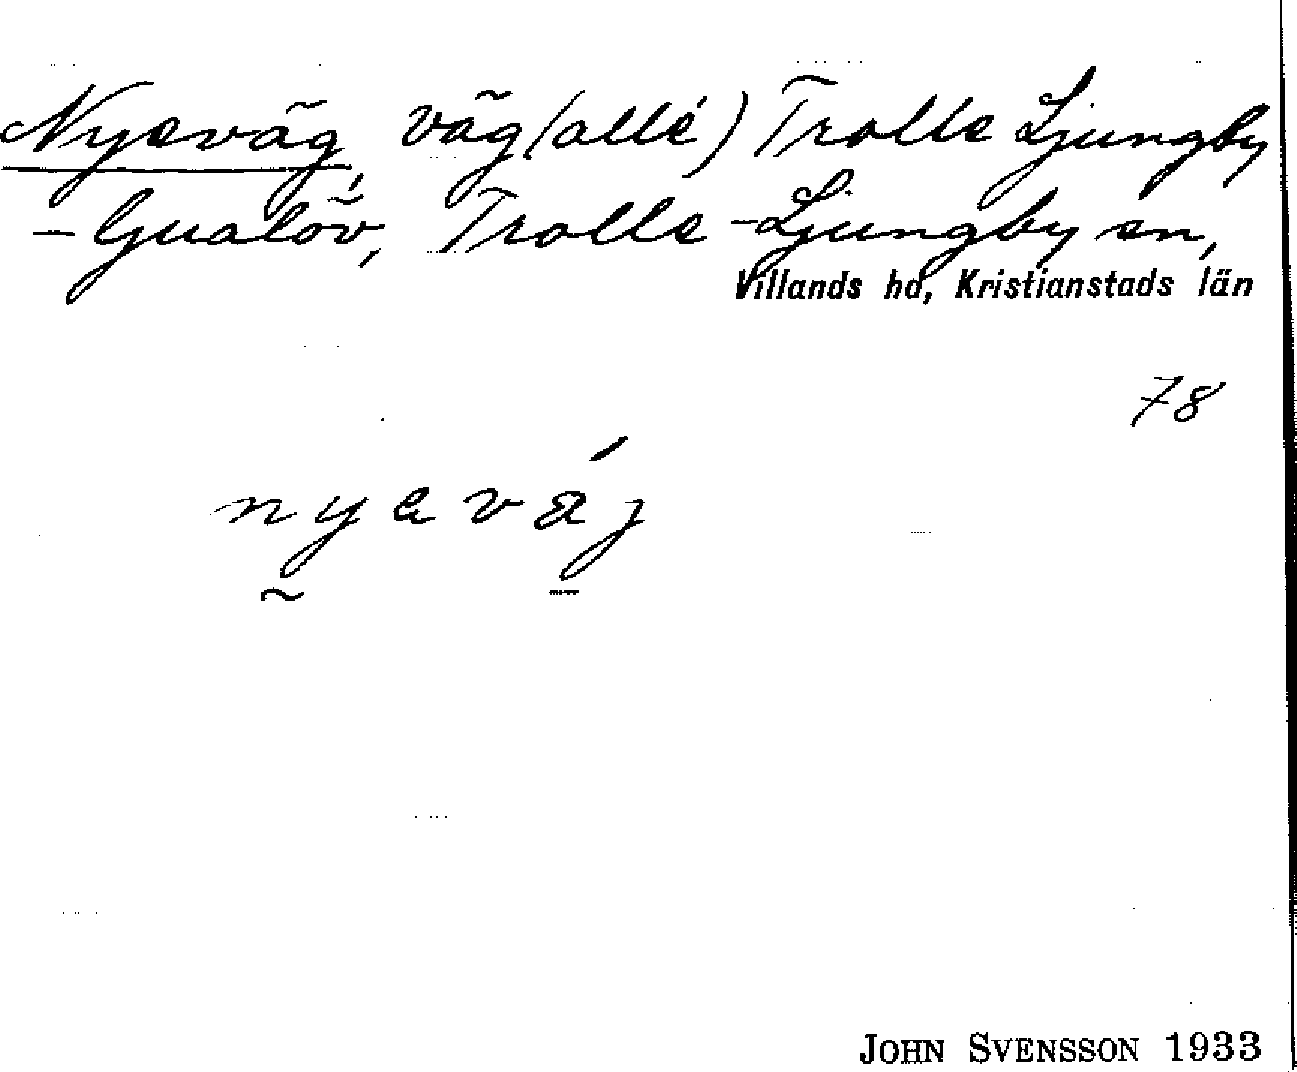 Nyeväg, väg (allé) Trolle Ljungby
- Gualöv, Trolle-Ljungby sn,
Villands hd, Kristianstads län
78
nyevǽj
John Svensson 1933